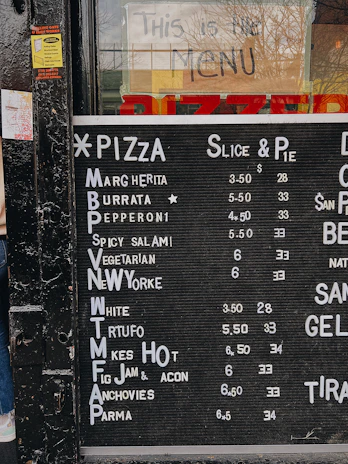 THIS is THE
MENU
PIZZER
*PIZZA SLICE & PIE
$
MARGHERITA 3-50 28
BURRATA ★ 5-50 33
PEPPERONI 4.50 33
SPICY SALAMI 5.50 33
VEGETARIAN 6 33
NEWYORKE 6 33
WHITE 3.50 28
TRTUFO 5,50 33
MIKES HOT 6,50 34
FIG JAM & ACON 6 33
ANCHOVIES 6,50 33
PARMA 6.5 34
SAN P
BE
NAT
SAN
GEL
TIRA